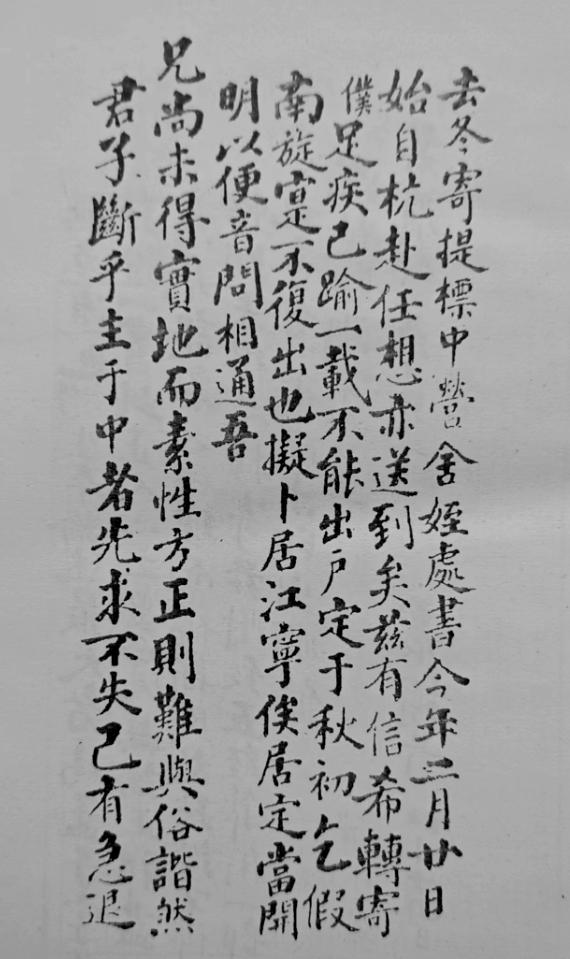 去冬寄提標中營舍姪處書今年二月廿日
始自杭赴任想亦送到矣茲有信希轉寄
僕足疾已踰一載不能出戶定于秋初乞假
南旋寔不復出也擬卜居江寧俟居定當開
明以便音問相通吾
兄尚未得實地而素性方正則難與俗諧然
君子斷乎主于中者先求不失己有急退